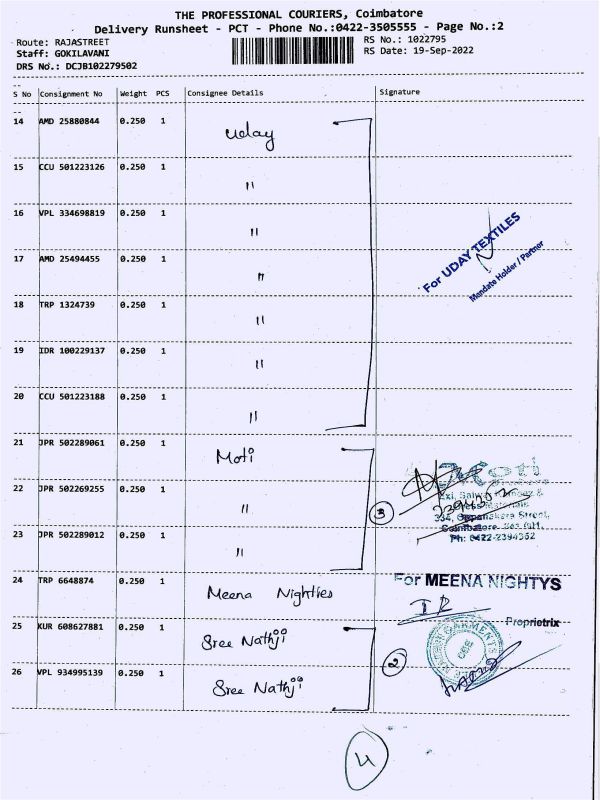 THE PROFESSIONAL COURIERS, Coimbatore
Delivery Runsheet - PCT - Phone No.:0422-3505555 - Page No.:2
Route: RAJASTREET
RS No.: 1022795
Staff: GOKILAVANI
RS Date: 19-Sep-2022
DRS No.: DCJB102279502
S No Consignment No Weight PCS Consignee Details Signature
14 AMD 25880844 0.250 1 Uday
15 CCU 501223126 0.250 1 "
16 VPL 334698819 0.250 1 "
17 AMD 25494455 0.250 1 "
For UDAY TEXTILES
Mandate Holder / Partner
18 TRP 1324739 0.250 1 "
19 IDR 100229137 0.250 1 "
20 CCU 501223188 0.250 1 "
21 JPR 502289061 0.250 1 Moti
Moti
22 JPR 502269255 0.250 1 "
3
334, Oppanakara Street,
Coimbatore
Ph: 0422-2394362
23 JPR 502289012 0.250 1 "
24 TRP 6648874 0.250 1 Meena Nighties
For MEENA NIGHTYS
Proprietrix
25 KUR 608627881 0.250 1 Sree Nathji
GARMENTS
CBE
2
26 VPL 934995139 0.250 1 Sree Nathji
4